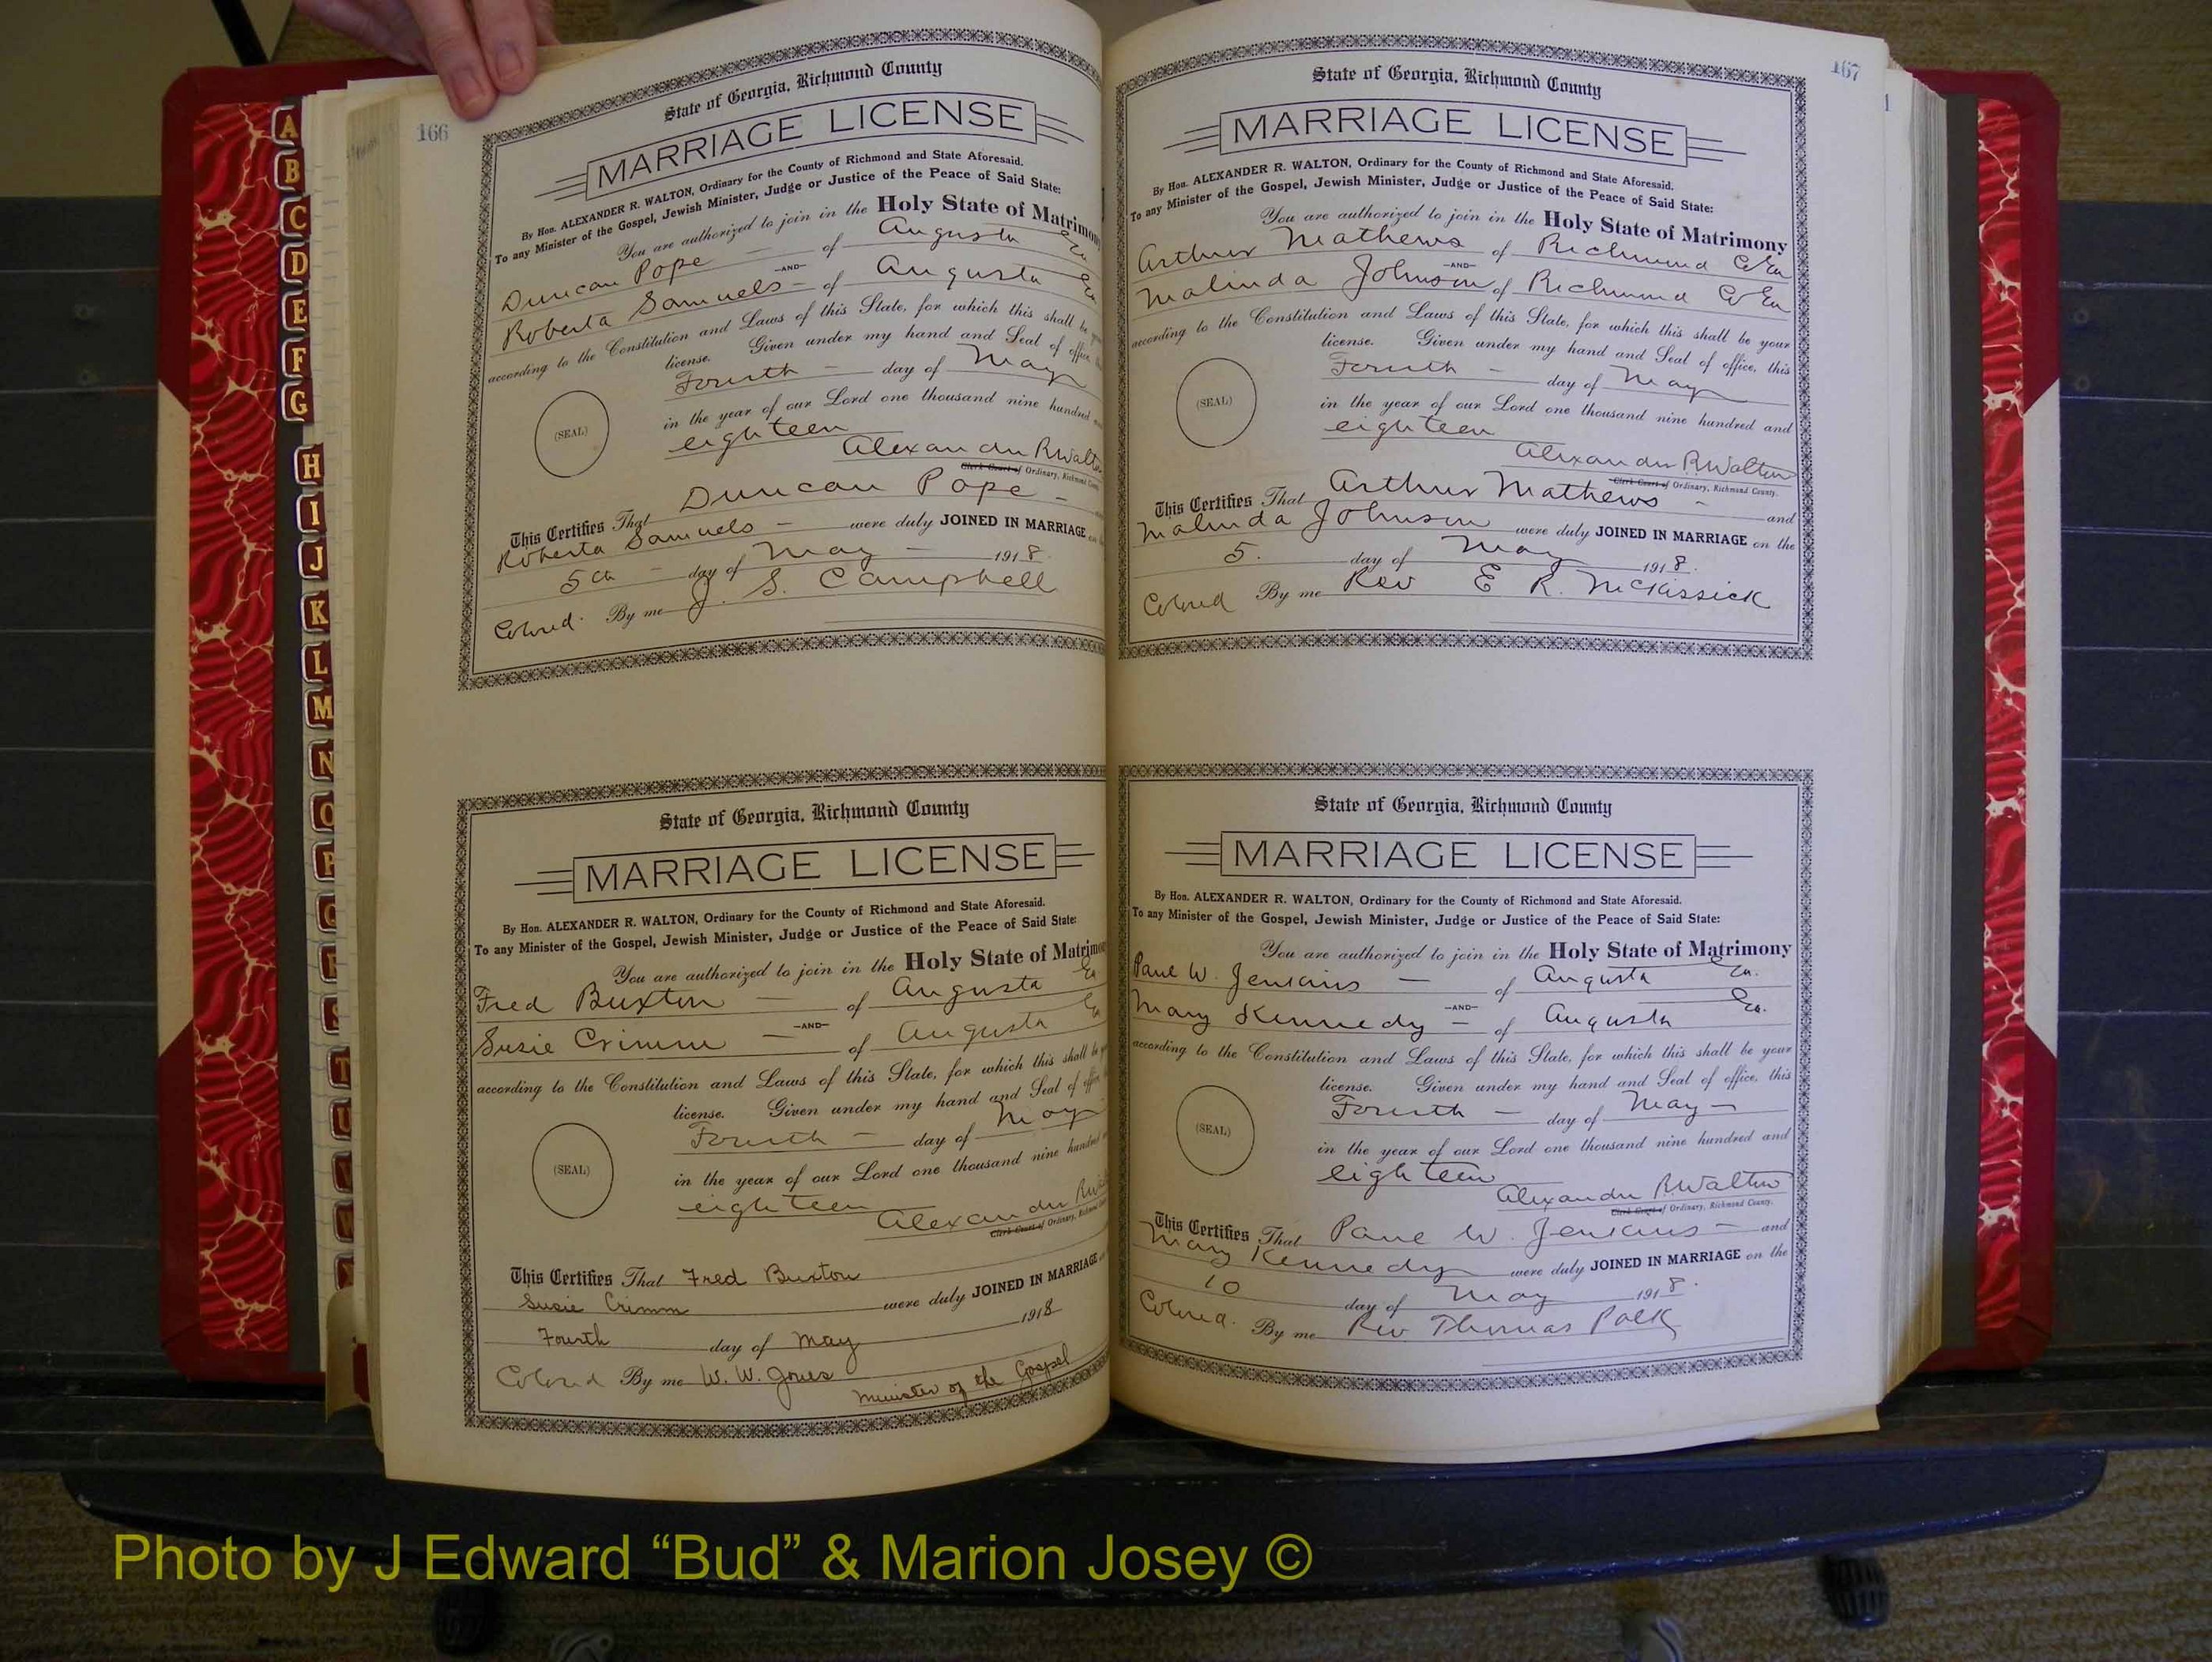 166
State of Georgia, Richmond County
MARRIAGE LICENSE
By Hon. ALEXANDER R. WALTON, Ordinary for the County of Richmond and State Aforesaid.
To any Minister of the Gospel, Jewish Minister, Judge or Justice of the Peace of Said State:
You are authorized to join in the Holy State of Matrimony
Duncan Pope — of Augusta Ga
—AND—
Roberta Samuels — of Augusta Ga
according to the Constitution and Laws of this State, for which this shall be
license. Given under my hand and Seal of office,
Fourth — day of May
in the year of our Lord one thousand nine hundred
(SEAL)
eighteen
Alexander R Walton
Clerk Court of Ordinary, Richmond County.
This Certifies That Duncan Pope —
Roberta Samuels — were duly JOINED IN MARRIAGE
5th — day of May — 1918.
Colored. By me J. S. Campbell
State of Georgia, Richmond County
MARRIAGE LICENSE
By Hon. ALEXANDER R. WALTON, Ordinary for the County of Richmond and State Aforesaid.
To any Minister of the Gospel, Jewish Minister, Judge or Justice of the Peace of Said State:
You are authorized to join in the Holy State of Matrimony
Fred Buxton — of Augusta Ga
—AND—
Susie Crimm — of Augusta Ga
according to the Constitution and Laws of this State, for which this shall be
license. Given under my hand and Seal of office,
Fourth — day of May
(SEAL)
in the year of our Lord one thousand nine hundred
eighteen
Alexander R
Clerk Court of Ordinary, Richmond
This Certifies That Fred Buxton
Susie Crimm were duly JOINED IN MARRIAGE
Fourth day of May 1918
Colored By me W. W. Jones
Minister of the Gospel
167
State of Georgia, Richmond County
MARRIAGE LICENSE
By Hon. ALEXANDER R. WALTON, Ordinary for the County of Richmond and State Aforesaid.
To any Minister of the Gospel, Jewish Minister, Judge or Justice of the Peace of Said State:
You are authorized to join in the Holy State of Matrimony
Arthur Mathews of Richmond Co Ga
—AND—
Malinda Johnson of Richmond Co Ga
according to the Constitution and Laws of this State, for which this shall be your
license. Given under my hand and Seal of office, this
Fourth — day of May
(SEAL)
in the year of our Lord one thousand nine hundred and
eighteen
Alexander R. Walton
Clerk Court of Ordinary, Richmond County.
This Certifies That Arthur Mathews — and
Malinda Johnson were duly JOINED IN MARRIAGE on the
5. day of May 1918.
Colored By me Rev E R. McKissick
State of Georgia, Richmond County
MARRIAGE LICENSE
By Hon. ALEXANDER R. WALTON, Ordinary for the County of Richmond and State Aforesaid.
To any Minister of the Gospel, Jewish Minister, Judge or Justice of the Peace of Said State:
You are authorized to join in the Holy State of Matrimony
Paul W. Jenkins — of Augusta Ga.
—AND—
Mary Kennedy — of Augusta Ga.
according to the Constitution and Laws of this State, for which this shall be your
license. Given under my hand and Seal of office, this
Fourth — day of May —
(SEAL)
in the year of our Lord one thousand nine hundred and
eighteen
Alexander R. Walton
Clerk Court of Ordinary, Richmond County.
This Certifies That Paul W. Jenkins — and
Mary Kennedy were duly JOINED IN MARRIAGE on the
10 day of May 1918.
Colored. By me Rev Thomas Polk
A
B
C
D
E
F
G
H
I
J
K
L
M
N
O
P
Q
R
S
T
U
V
W
Photo by J Edward “Bud” & Marion Josey ©